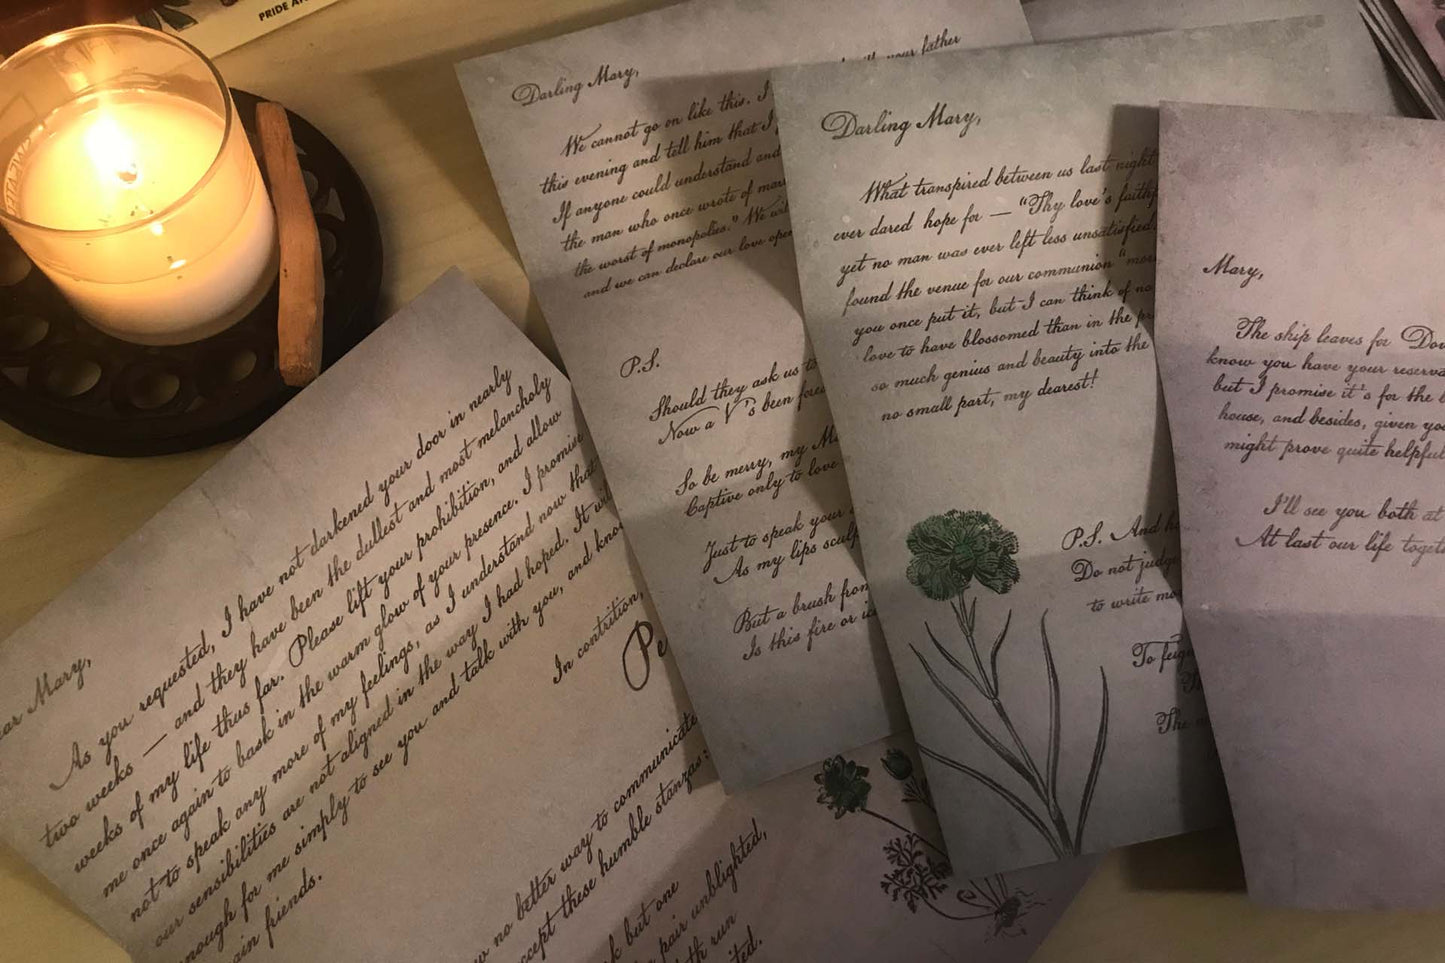 PRIDE
Darling Mary,
We cannot go on like this. I
with your father
this evening and tell him that I
If anyone could understand and
the man who once wrote of
the worst of monopolies." We
and we can declare our love
P.S.
Should they ask us
Now a V's been
So be merry, my
Captive only to love
Just to speak your
As my lips
But a brush from
Is this fire or
Darling Mary,
What transpired between us last night
ever dared hope for — "Thy love's
yet no man was ever left less unsatisfied
found the venue for our communion
you once put it, but I can think of no
love to have blossomed than in the
so much genius and beauty into the
no small part, my dearest!
P.S. And
Do not
to write
To
The
Mary,
The ship leaves for
know you have your
but I promise it's for the
house, and besides, given
might prove quite helpful
I'll see you both at
At last our life
Mary,
As you requested, I have not darkened your door in nearly
two weeks — and they have been the dullest and most melancholy
weeks of my life thus far. Please lift your prohibition, and allow
me once again to bask in the warm glow of your presence. I promise
not to speak any more of my feelings, as I understand now that
our sensibilities are not aligned in the way I had hoped. It
enough for me simply to see you and talk with you, and
friends.
In contrition,
no better way to communicate
these humble stanzas:
but one
pair unblighted,
run